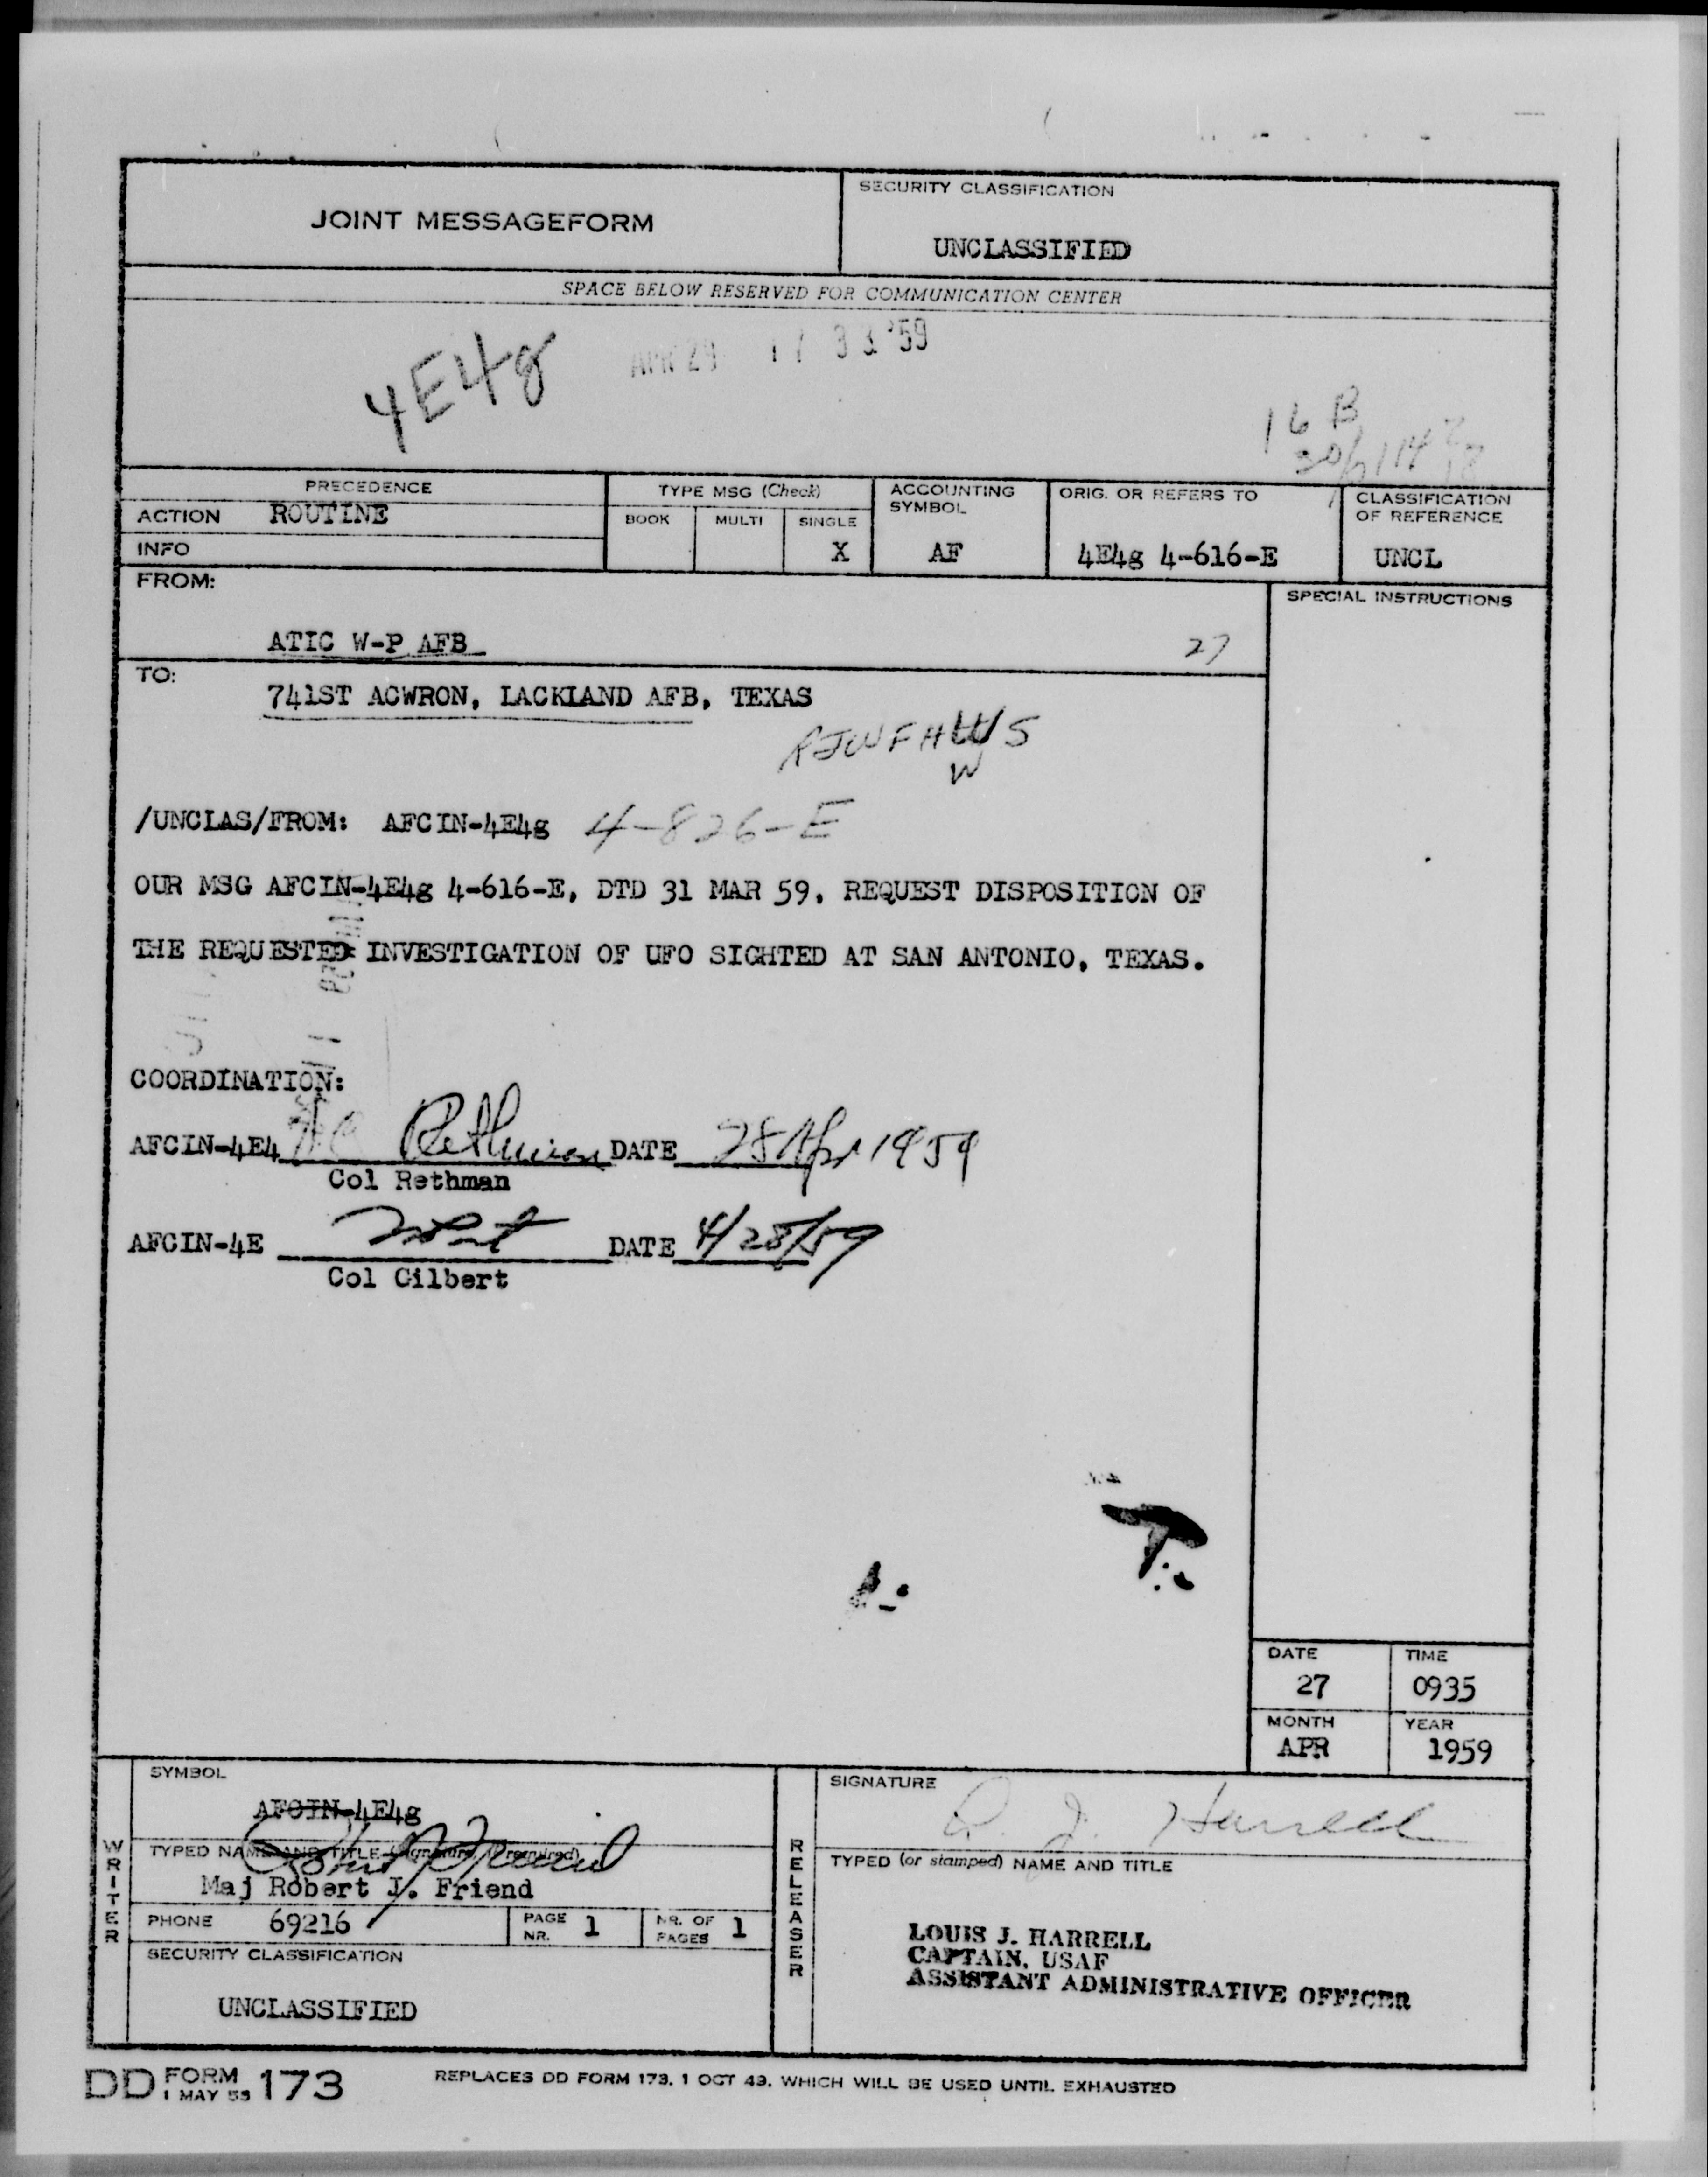 JOINT MESSAGEFORM
SECURITY CLASSIFICATION
UNCLASSIFIED
SPACE BELOW RESERVED FOR COMMUNICATION CENTER
4E4g
APR 29 17 33 '59
16 B
PRECEDENCE
ACTION ROUTINE
INFO
TYPE MSG (Check)
BOOK MULTI SINGLE
X
ACCOUNTING
SYMBOL
AF
ORIG. OR REFERS TO
4E4g 4-616-E
CLASSIFICATION
OF REFERENCE
UNCL
FROM:
SPECIAL INSTRUCTIONS
ATIC W-P AFB
27
TO:
741ST ACWRON, LACKLAND AFB, TEXAS
RJWFH S
W
/UNCLAS/FROM: AFCIN-4E4g 4-826-E
OUR MSG AFCIN-4E4g 4-616-E, DTD 31 MAR 59, REQUEST DISPOSITION OF
THE REQUESTED INVESTIGATION OF UFO SIGHTED AT SAN ANTONIO, TEXAS.
COORDINATION:
AFCIN-4E4 Rethman DATE 28 Apr 1959
Col Rethman
AFCIN-4E DATE 4/28/59
Col Gilbert
DATE
27
TIME
0935
MONTH
APR
YEAR
1959
WRITER
SYMBOL
AFCIN-4E4g
TYPED NAME AND TITLE (Signature, if required)
Robert J Friend
Maj Robert J. Friend
PHONE 69216
PAGE NR. 1
NR. OF PAGES 1
SECURITY CLASSIFICATION
UNCLASSIFIED
RELEASER
SIGNATURE
L. J. Harrell
TYPED (or stamped) NAME AND TITLE
LOUIS J. HARRELL
CAPTAIN, USAF
ASSISTANT ADMINISTRATIVE OFFICER
DD FORM 173
1 MAY 55
REPLACES DD FORM 173, 1 OCT 49, WHICH WILL BE USED UNTIL EXHAUSTED